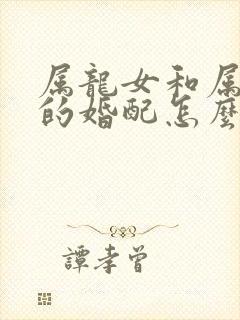 属龍女和属
的婚配怎麼
譚孝曾